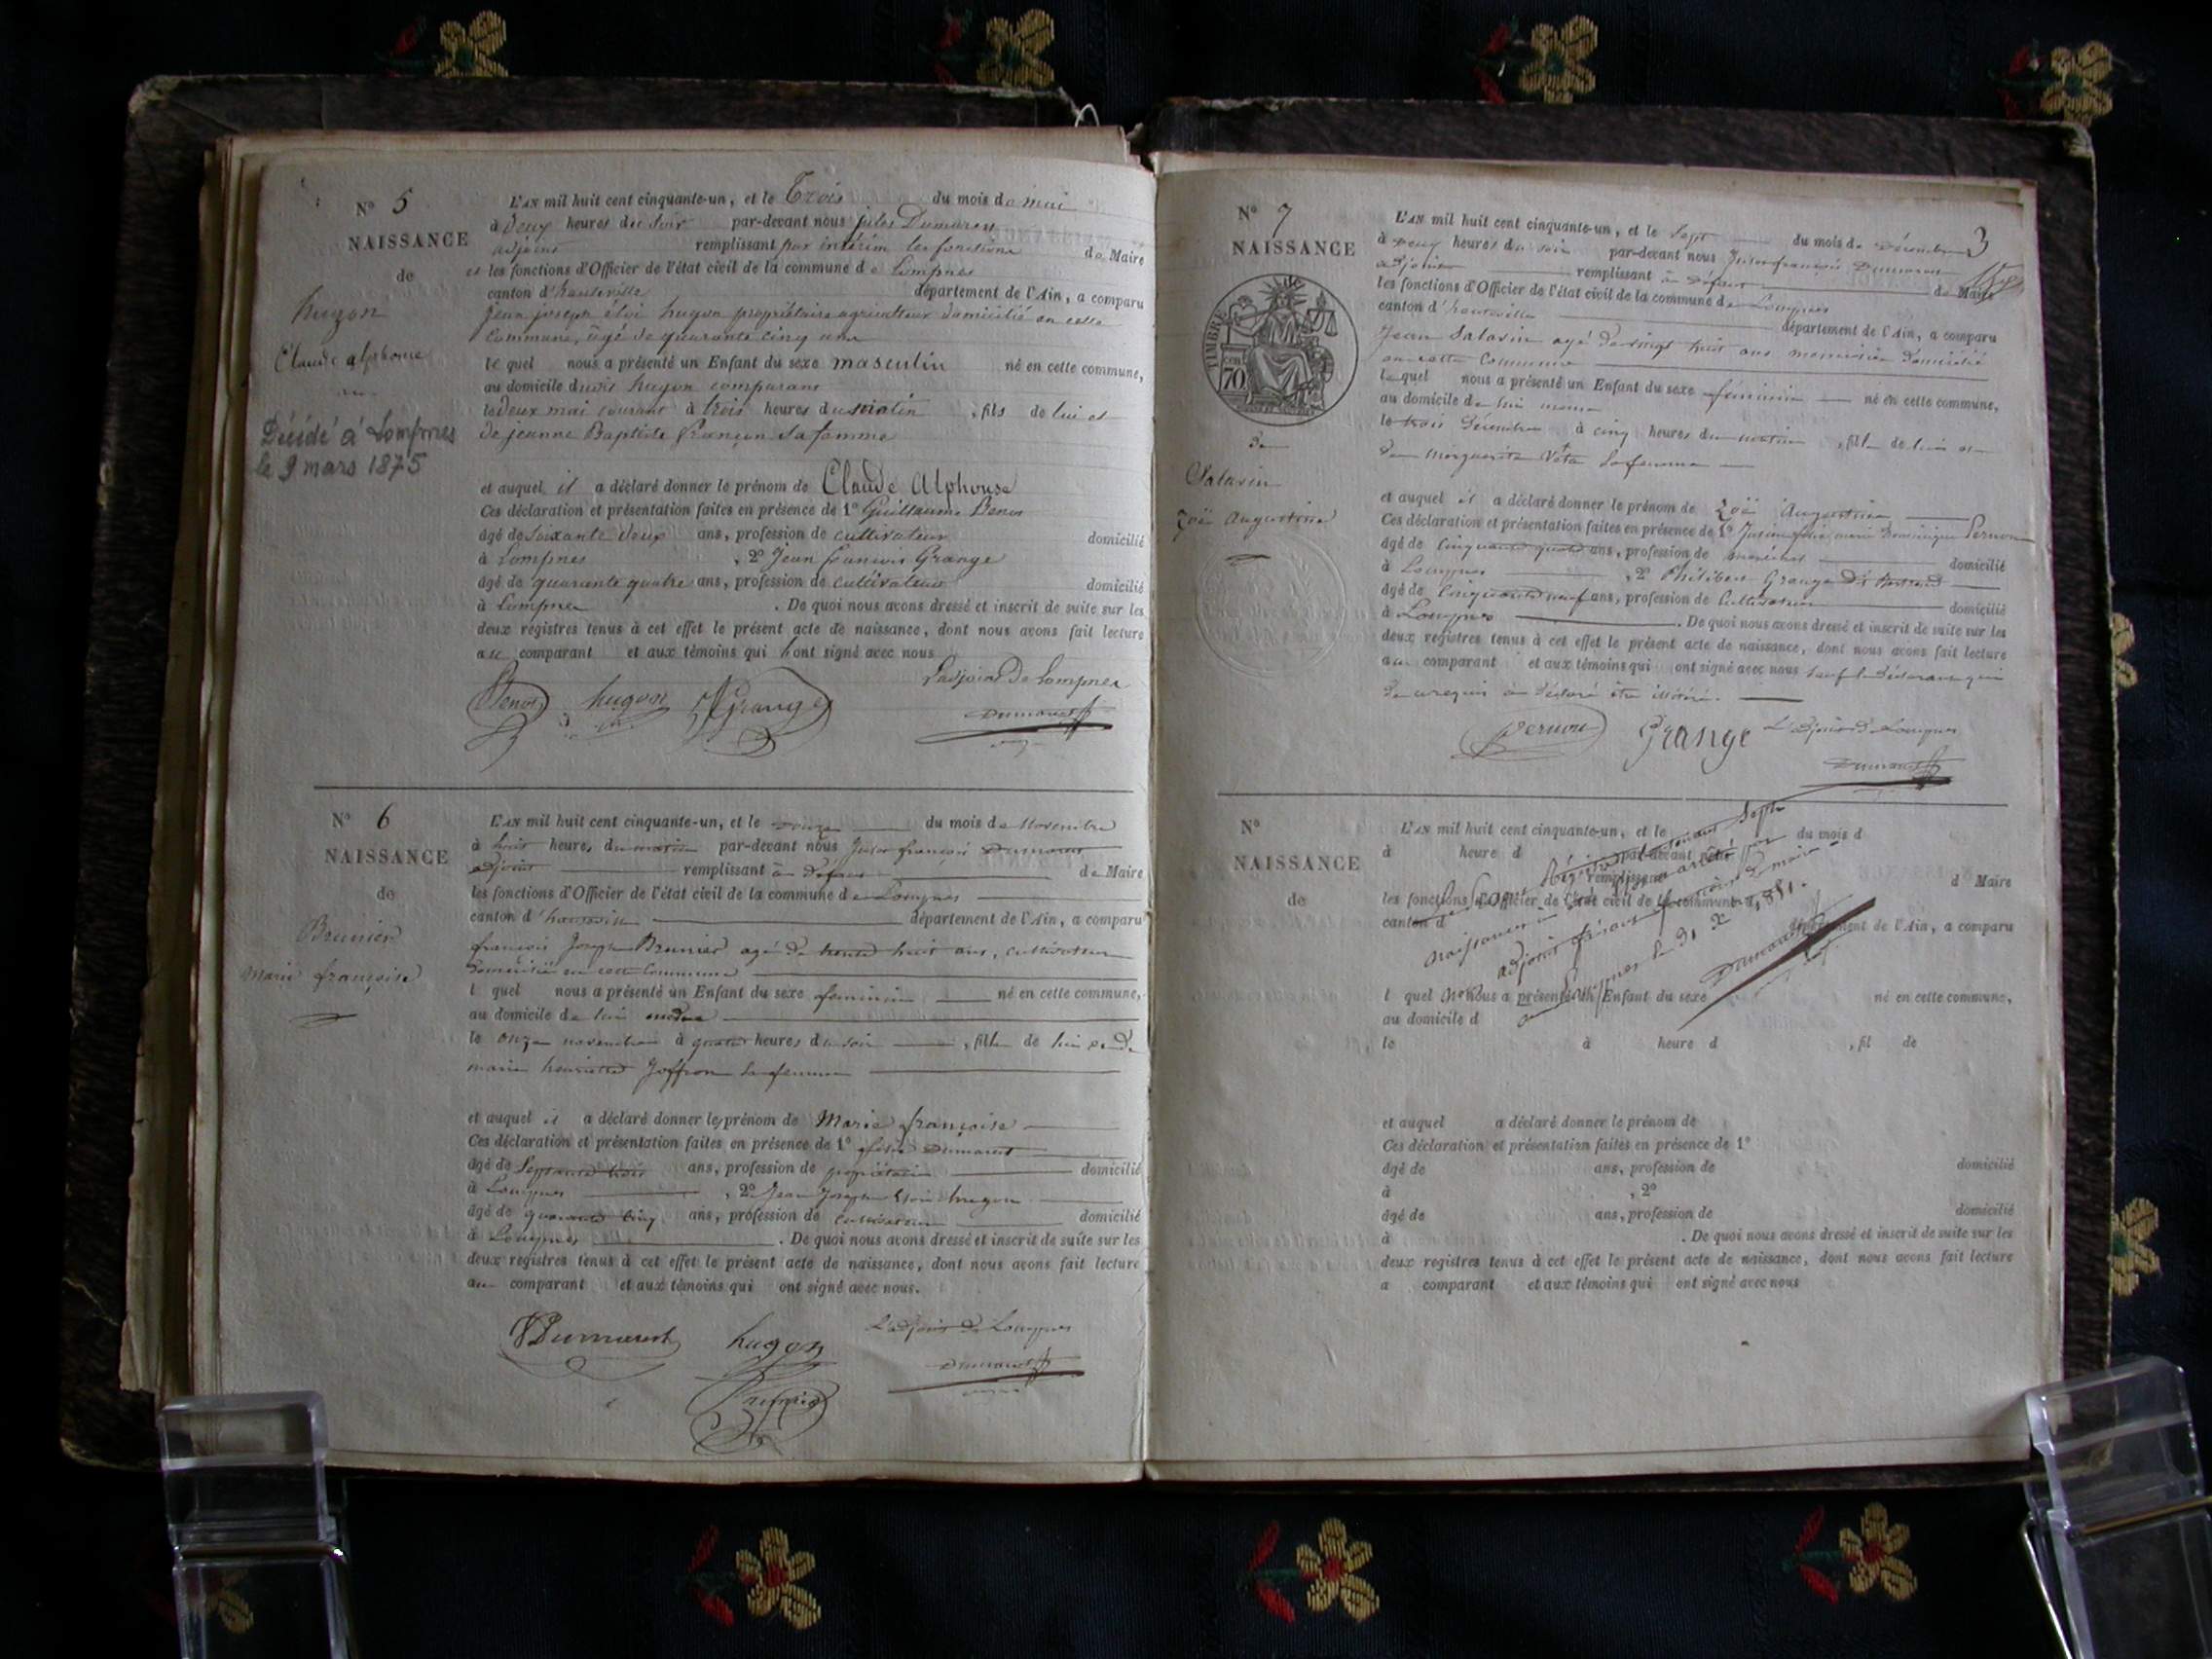 N° 5
NAISSANCE
de
hugon
Claude alphonse
Décédé à Lompnes
le 9 mars 1875
L'AN mil huit cent cinquante-un, et le Trois du mois de mai
à deux heures du soir par-devant nous jules Dumarest
adjoint remplissant par intérim les fonctions de Maire
et les fonctions d'Officier de l'état civil de la commune de Lompnes
canton d'hauteville département de l'Ain, a comparu
jean joseph éloi hugon propriétaire agriculteur domicilié en cette
commune, âgé de quarante cinq ans
lequel nous a présenté un Enfant du sexe masculin né en cette commune,
au domicile dudit hugon comparant
le deux mai courant à trois heures du matin, fils de lui et
de jeanne Baptiste françon sa femme
et auquel il a déclaré donner le prénom de Claude Alphonse
Ces déclaration et présentation faites en présence de 1° Guillaume Benos
âgé de soixante deux ans, profession de cultivateur domicilié
à Lompnes, 2° Jean francois Grange
âgé de quarante quatre ans, profession de cultivateur domicilié
à Lompnes. De quoi nous avons dressé et inscrit de suite sur les
deux registres tenus à cet effet le présent acte de naissance, dont nous avons fait lecture
au comparant et aux témoins qui ont signé avec nous
L'adjoint de Lompnes
hugon Grange Dumarest
N° 6
NAISSANCE
de
Brunier
Marie françoise
L'AN mil huit cent cinquante-un, et le douze du mois de Novembre
à huit heures du matin par-devant nous Jules françois Dumarest
adjoint remplissant à défaut de Maire
les fonctions d'Officier de l'état civil de la commune de Lompnes
canton d' département de l'Ain, a comparu
françois Joseph Brunier agé de trente huit ans, cultivateur
domicilié en cette Commune
l quel nous a présenté un Enfant du sexe feminin né en cette commune,
au domicile de lui même
le onze novembre à quatre heures du soir, fille de lui et de
marie henriette Joffron sa femme
et auquel il a déclaré donner le prénom de Marie françoise
Ces déclaration et présentation faites en présence de 1° Dumarest
âgé de Septante trois ans, profession de propriétaire domicilié
à Lompnes, 2° Jean Joseph Eloi hugon
âgé de quarante cinq ans, profession de cultivateur domicilié
à Lompnes. De quoi nous avons dressé et inscrit de suite sur les
deux registres tenus à cet effet le présent acte de naissance, dont nous avons fait lecture
au comparant et aux témoins qui ont signé avec nous.
Dumarest hugon L'adjoint de Lompnes
Dumarest
Brunier
3
N° 7
NAISSANCE
TIMBRE de
70 cent
de
Salavin
Zoë Augustine
L'AN mil huit cent cinquante-un, et le Sept du mois de Décembre
à deux heures du soir par-devant nous Jules françois Dumarest
adjoint remplissant à défaut de Maire
les fonctions d'Officier de l'état civil de la commune de Lompnes
canton d'hauteville département de l'Ain, a comparu
Jean Salavin agé de vingt huit ans menuisier domicilié
en cette Commune
lequel nous a présenté un Enfant du sexe féminin né en cette commune,
au domicile de lui même
le trois Décembre à cinq heures du matin, fille de lui et
de Marguerite sa femme
et auquel il a déclaré donner le prénom de Zoë Augustine
Ces déclaration et présentation faites en présence de 1° Dominique Pernon
âgé de cinquante quatre ans, profession de maréchal domicilié
à Lompnes, 2° Philibert Grange
âgé de cinquante neuf ans, profession de Cultivateur domicilié
à Lompnes. De quoi nous avons dressé et inscrit de suite sur les
deux registres tenus à cet effet le présent acte de naissance, dont nous avons fait lecture
au comparant et aux témoins qui ont signé avec nous sauf le déclarant qui
de ce requis à déclaré être illitéré.
Pernon Grange L'adjoint de Lompnes
Dumarest
N°
NAISSANCE
de
L'AN mil huit cent cinquante-un, et le du mois d
à heure d par-devant nous
remplissant d Maire
les fonctions d'Officier de l'état civil de la commune d
canton d département de l'Ain, a comparu
l quel nous a présenté un Enfant du sexe né en cette commune,
au domicile d
le à heure d, fil de
et auquel a déclaré donner le prénom de
Ces déclaration et présentation faites en présence de 1°
âgé de ans, profession de domicilié
à, 2°
âgé de ans, profession de domicilié
à. De quoi nous avons dressé et inscrit de suite sur les
deux registres tenus à cet effet le présent acte de naissance, dont nous avons fait lecture
a comparant et aux témoins qui ont signé avec nous